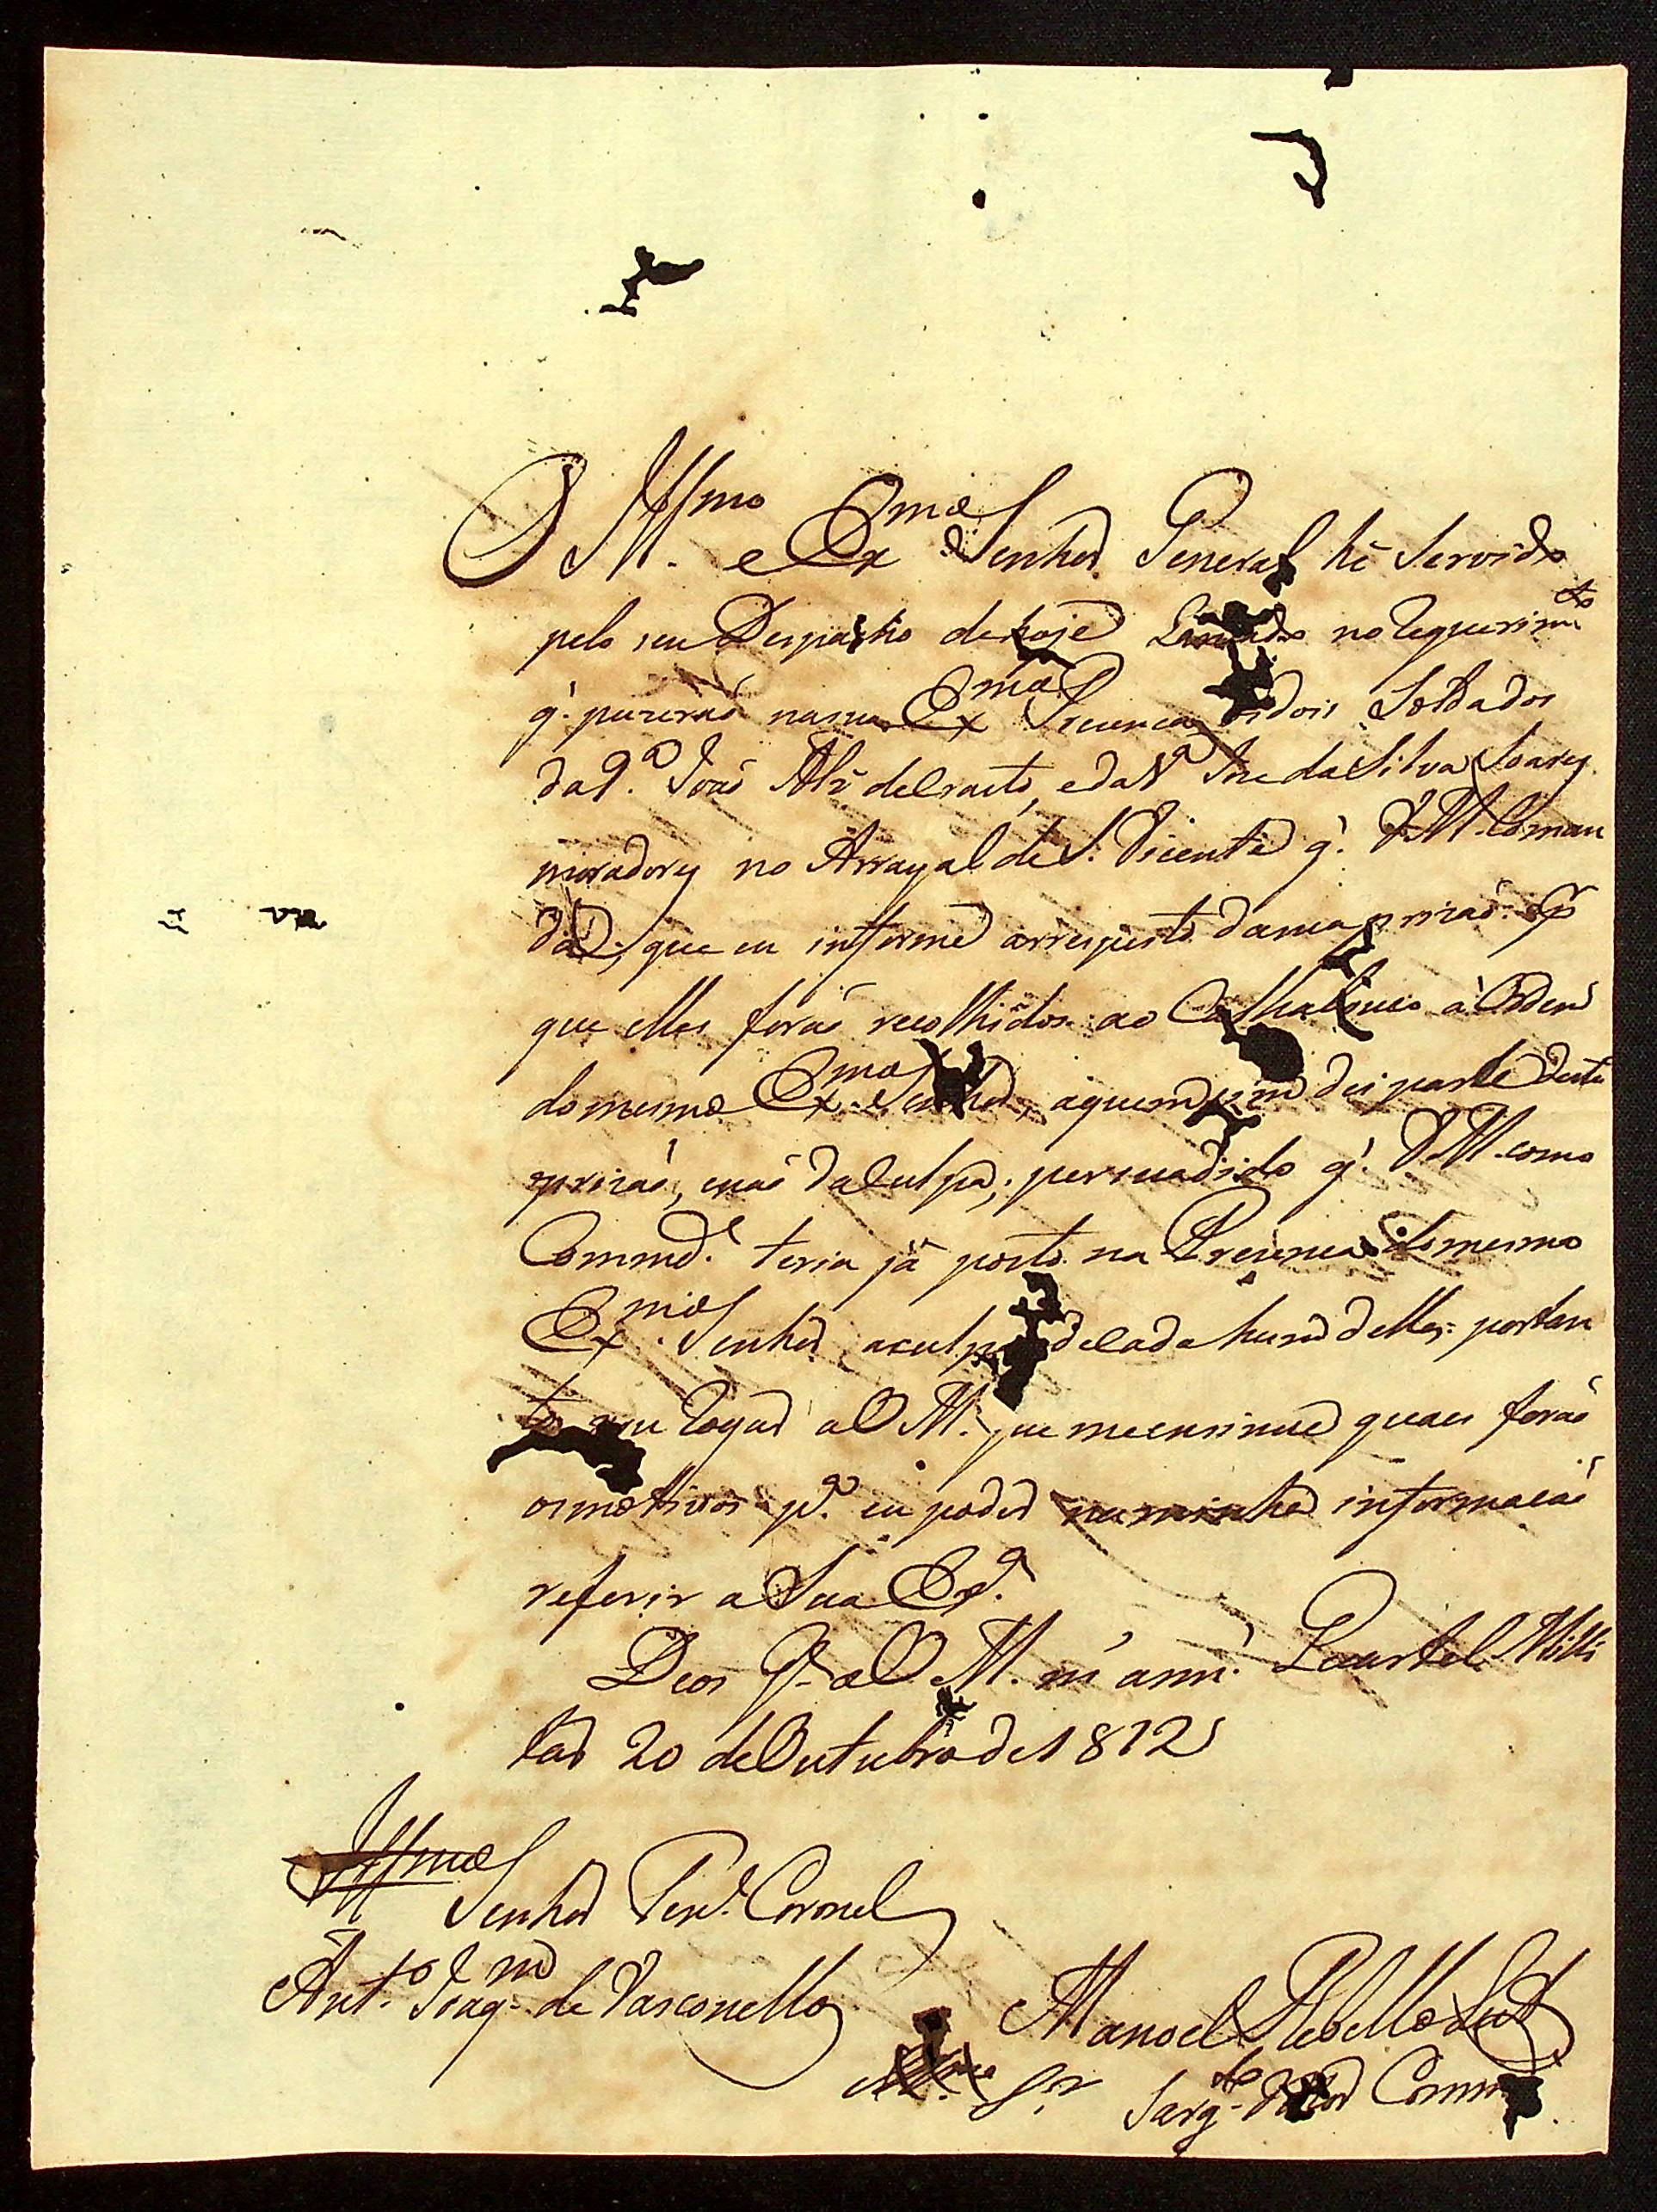 O Ill.mo e Ex.mo Senhor General hé Servido
pelo seu Despacho de hoje no Requerim.to
q̃. puzeraõ na sua Ex.ma Prezença os dois Soldados
da 1.a Joaõ Alz̃ e da Joze da Silva Soares
moradores no Arrayal de S. Vicente q̃. V. M. Coman
da, que eu informe arrespeito da sua prizaõ. 
que elles foraõ recolhidos ao Calhabouco á Ordem
do mesmo Ex.mo Senhor, aquem dei parte desta
prizaõ, enaõ da Culpa; persuadido q̃. V. M. como
Commd.e teria já posto na Prezença do mesmo
Ex.mo Senhor aculpa decada hum delles: portan
to rogar a V. M. que meensinue quaes foraõ
osmotivos p.a eu poder na minha informacaõ
referir a Sua Ex.a
Deos G.e a V. M. m.s ann.s Quartel Mili
tar 20 de Outubro de 1812
Ill.mo
Senhor Ten.e Coronel
Ant.o Joaq.m de Vasconcellos
Manoel Rebello
S.r Sarg.to Mor Comm.e